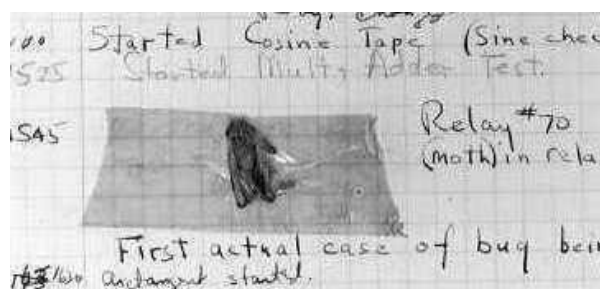 Started Cosine Tape (Sine chec
1525 Started Mult+ Adder Test.
1545 Relay #70
(moth) in rela
First actual case of bug bein
started.